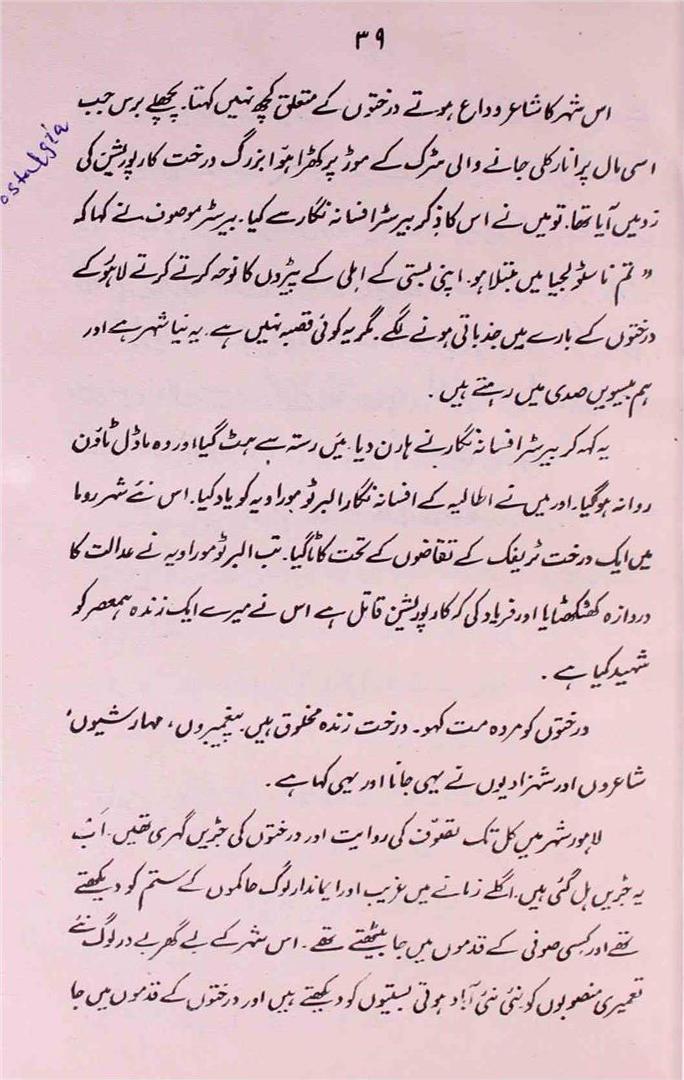 ۳۹
اس شہر کا شاعر وداع ہوتے درختوں کے متعلق کچھ نہیں کہتا۔ پچھلے برس جب
ostalgia
اسی مال پر انارکلی جانے والی سڑک کے موڑ پر کھڑا ہوا بزرگ درخت کارپوریشن کی
زد میں آیا تھا۔ تو میں نے اس کا ذکر بیرسٹر افسانہ نگار سے کیا۔ بیرسٹر موصوف نے کہا کہ
" تم ناسٹولجیا میں مبتلا ہو۔ اپنی بستی کے املی کے پیڑوں کا نوحہ کرتے کرتے لاہور کے
درختوں کے بارے میں جذباتی ہونے لگے۔ مگر یہ کوئی قصبہ نہیں ہے۔ یہ نیا شہر ہے اور
ہم بیسویں صدی میں رہتے ہیں ۔
یہ کہہ کر بیرسٹر افسانہ نگار نے ہارن دیا۔ میں رستہ سے ہٹ گیا اور وہ ماڈل ٹاؤن
روانہ ہو گیا۔ اور میں نے اطالیہ کے افسانہ نگار البرٹو موراویہ کو یاد کیا۔ اس نئے شہر روما
میں ایک درخت ٹریفک کے تقاضوں کے تحت کاٹا گیا۔ تب البرٹو موراویہ نے عدالت کا
دروازہ کھٹکھٹایا اور فریاد کی کہ کارپوریشن قاتل ہے اس نے میرے ایک زندہ ہمعصر کو
شہید کیا ہے ۔
درختوں کو مردہ مت کہو۔ درخت زندہ مخلوق ہیں۔ پیغمبروں، مہارشیوں،
شاعروں اور شہزادیوں نے یہی جانا اور یہی کہا ہے۔
لاہور شہر میں کل تک تصوّف کی روایت اور درختوں کی جڑیں گہری تھیں۔ اَب
یہ جڑیں ہل گئی ہیں۔ اگلے زمانے میں غریب اور ایماندار لوگ حاکموں کے ستم کو دیکھتے
تھے اور کسی صوفی کے قدموں میں جا بیٹھتے تھے۔ اس شہر کے بے گھر بے در لوگ نئے
تعمیری منصوبوں کو نئی نئی آباد ہوتی بستیوں کو دیکھتے ہیں اور درختوں کے قدموں میں جا